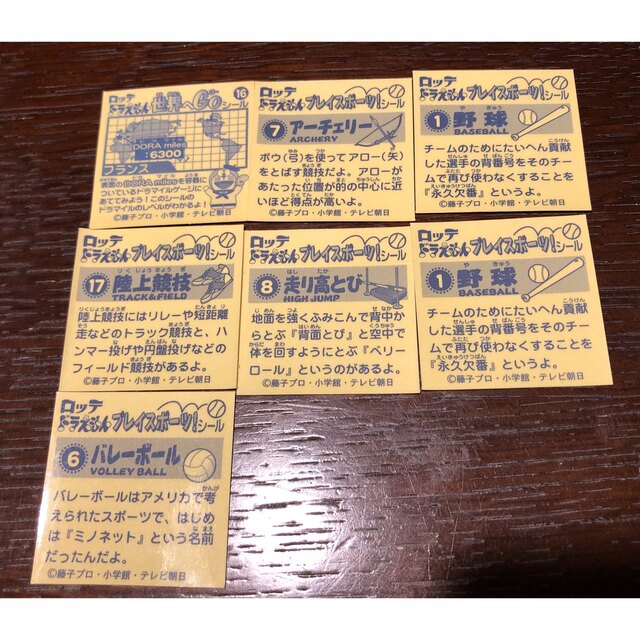 ロッテ
ドラえもん 世界へGOシール
16
DORA miles
:6300
フランス
表面のDORA milesを容器に
ついているドラマイルゲージに
あててみよう!このシールの
ドラマイルのレベルがわかるよ!
©藤子プロ・小学館・テレビ朝日
ロッテ
ドラえもん プレイスポーツ!シール
7 アーチェリー
ARCHERY
ボウ(弓)を使ってアロー(矢)
をとばす競技だよ。アローが
あたった位置が的の中心に近
いほど得点が高いよ。
©藤子プロ・小学館・テレビ朝日
ロッテ
ドラえもん プレイスポーツ!シール
1 野球
BASEBALL
チームのためにたいへん貢献
した選手の背番号をそのチー
ムで再び使わなくすることを
『永久欠番』というよ。
©藤子プロ・小学館・テレビ朝日
ロッテ
ドラえもん プレイスポーツ!シール
17 陸上競技
TRACK&FIELD
陸上競技にはリレーや短距離
走などのトラック競技と、ハ
ンマー投げや円盤投げなどの
フィールド競技があるよ。
©藤子プロ・小学館・テレビ朝日
ロッテ
ドラえもん プレイスポーツ!シール
8 走り高とび
HIGH JUMP
地面を強くふみこんで背中か
らとぶ『背面とび』と空中で
体を回すようにとぶ『ベリー
ロール』というのがあるよ。
©藤子プロ・小学館・テレビ朝日
ロッテ
ドラえもん プレイスポーツ!シール
1 野球
BASEBALL
チームのためにたいへん貢献
した選手の背番号をそのチー
ムで再び使わなくすることを
『永久欠番』というよ。
©藤子プロ・小学館・テレビ朝日
ロッテ
ドラえもん プレイスポーツ!シール
6 バレーボール
VOLLEY BALL
バレーボールはアメリカで考
えられたスポーツで、はじめ
は『ミノネット』という名前
だったんだよ。
©藤子プロ・小学館・テレビ朝日